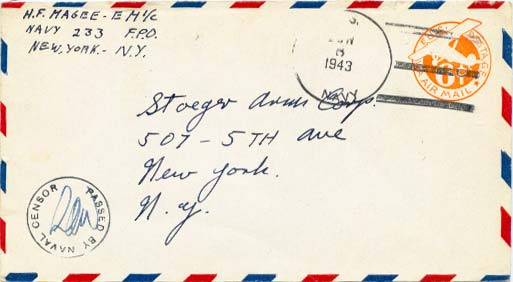 H.F. MAGEE - EM 1/c
NAVY 233 F.P.O.
NEW, YORK. - N.Y.
1943
NAVY
U.S. POSTAGE
6¢
AIR MAIL
Stoeger Arms Corp.
507 - 5TH ave
New York.
N.Y.
PASSED BY NAVAL CENSOR